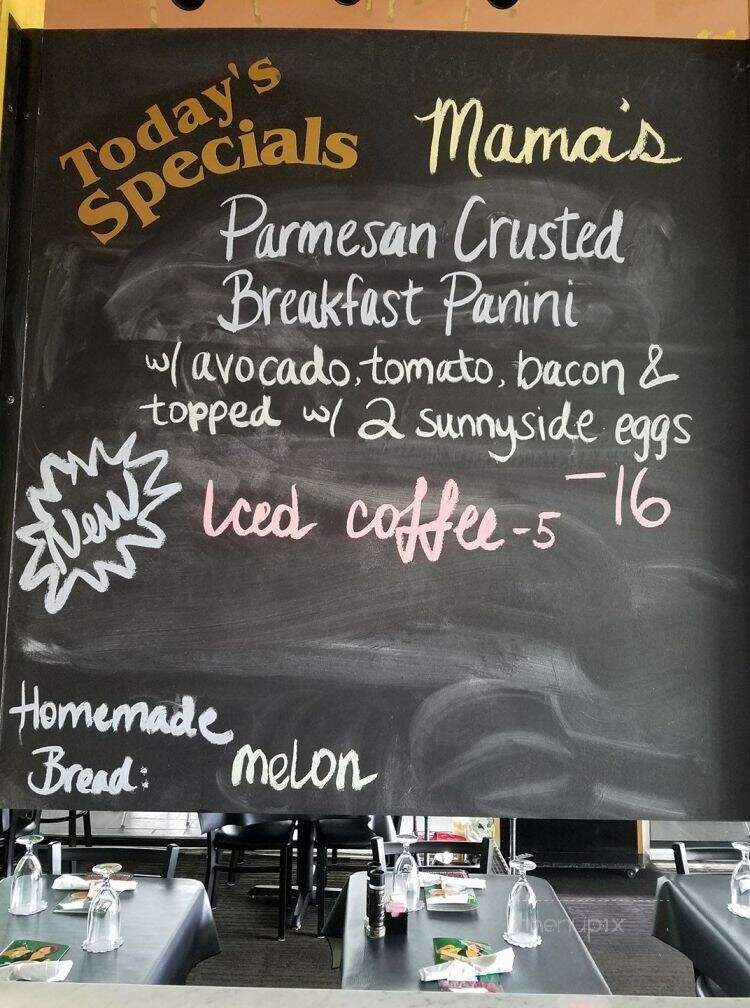 Today's
Specials
Mama's
Parmesan Crusted
Breakfast Panini
w/ avocado, tomato, bacon &
topped w/ 2 sunnyside eggs
-16
New
Iced coffee-5
Homemade
Bread:
melon
menupix